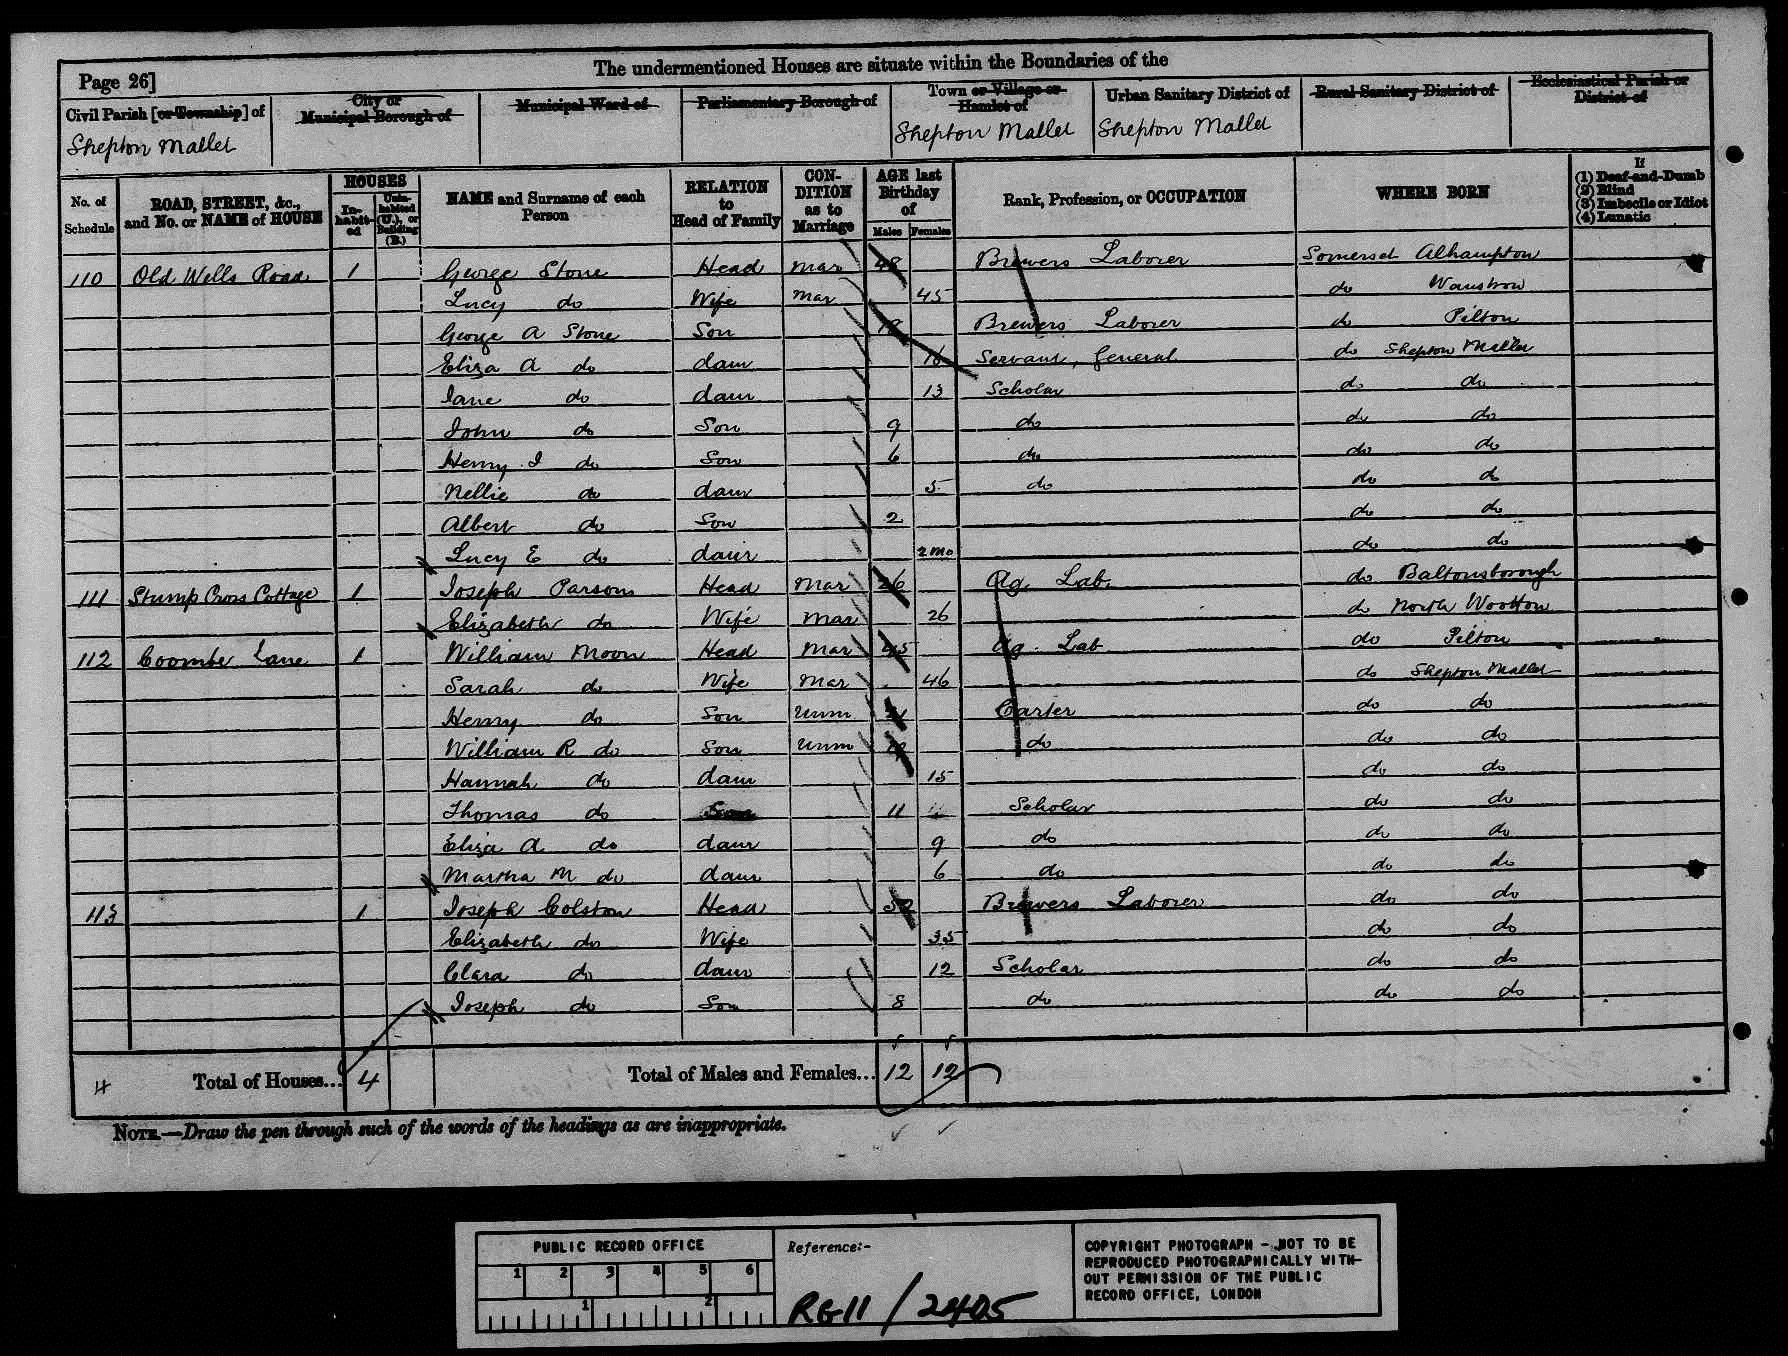 Page 26]
The undermentioned Houses are situate within the Boundaries of the
Civil Parish [or Township] of
City or Municipal Borough of
Municipal Ward of
Parliamentary Borough of
Town or Village or Hamlet of
Urban Sanitary District of
Rural Sanitary District of
Ecclesiastical Parish or District of
Shepton Mallet Shepton Mallet Shepton Mallet
No. of Schedule
ROAD, STREET, &c., and No. or NAME of HOUSE
HOUSES
Inhabited
Uninhabited (U.), or Building (B.)
NAME and Surname of each Person
RELATION to Head of Family
CONDITION as to Marriage
AGE last Birthday of
Males Females
Rank, Profession, or OCCUPATION
WHERE BORN
If
(1) Deaf-and-Dumb
(2) Blind
(3) Imbecile or Idiot
(4) Lunatic
110 Old Wells Road 1 George Stone Head Mar 48 Brewers Laborer Somerset Alhampton
Lucy do Wife Mar 45 do Wanstrow
George A Stone Son Brewers Laborer do Pilton
Eliza A do daur 16 Servant, General do Shepton Mallet
Jane do daur 13 Scholar do do
John do Son 9 do do do
Henry J do Son 6 do do do
Nellie do daur 5 do do do
Albert do Son 2 do do
Lucy E do daur 2 mo do do
111 Stump Cross Cottage 1 Joseph Parsons Head Mar 26 Ag. Lab. do Baltonsborough
Elizabeth do Wife Mar 26 do North Wootton
112 Coombe Lane 1 William Moon Head Mar 45 Ag. Lab do Pilton
Sarah do Wife Mar 46 do Shepton Mallet
Henry do Son Unm Carter do do
William R do Son Unm do do do
Hannah do daur 15 do do
Thomas do Son 11 Scholar do do
Eliza A do daur 9 do do do
Martha M do daur 6 do do do
113 1 Joseph Colston Head Brewers Laborer do do
Elizabeth do Wife 35 do do
Clara do daur 12 Scholar do do
Joseph do Son 8 do do do
4 Total of Houses... 4 Total of Males and Females... 12 12
NOTE.—Draw the pen through such of the words of the headings as are inappropriate.
PUBLIC RECORD OFFICE
1 2 3 4 5 6
1 2
Reference:-
RG11 / 2405
COPYRIGHT PHOTOGRAPH - NOT TO BE
REPRODUCED PHOTOGRAPHICALLY WITH-
OUT PERMISSION OF THE PUBLIC
RECORD OFFICE, LONDON